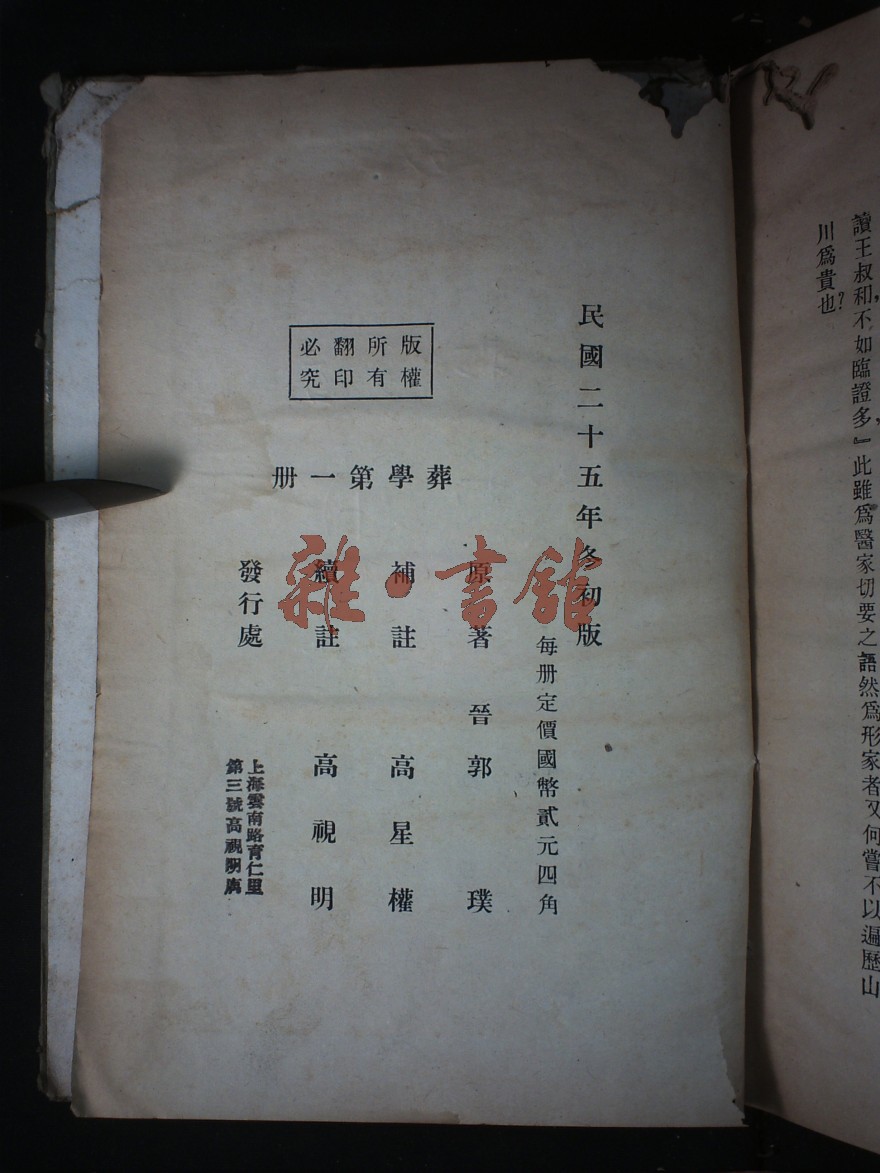 讀王叔和,不如臨證多,』此雖爲醫家切要之語然爲形家者又何嘗不以遍歷山
川爲貴也?
民國二十五年冬初版
每册定價國幣貳元四角
版權所有翻印必究
葬學第一册
原著 晉郭璞
補註 高星權
續註 高視明
發行處
上海雲南路育仁里
第三號高視明寓
雜·書館